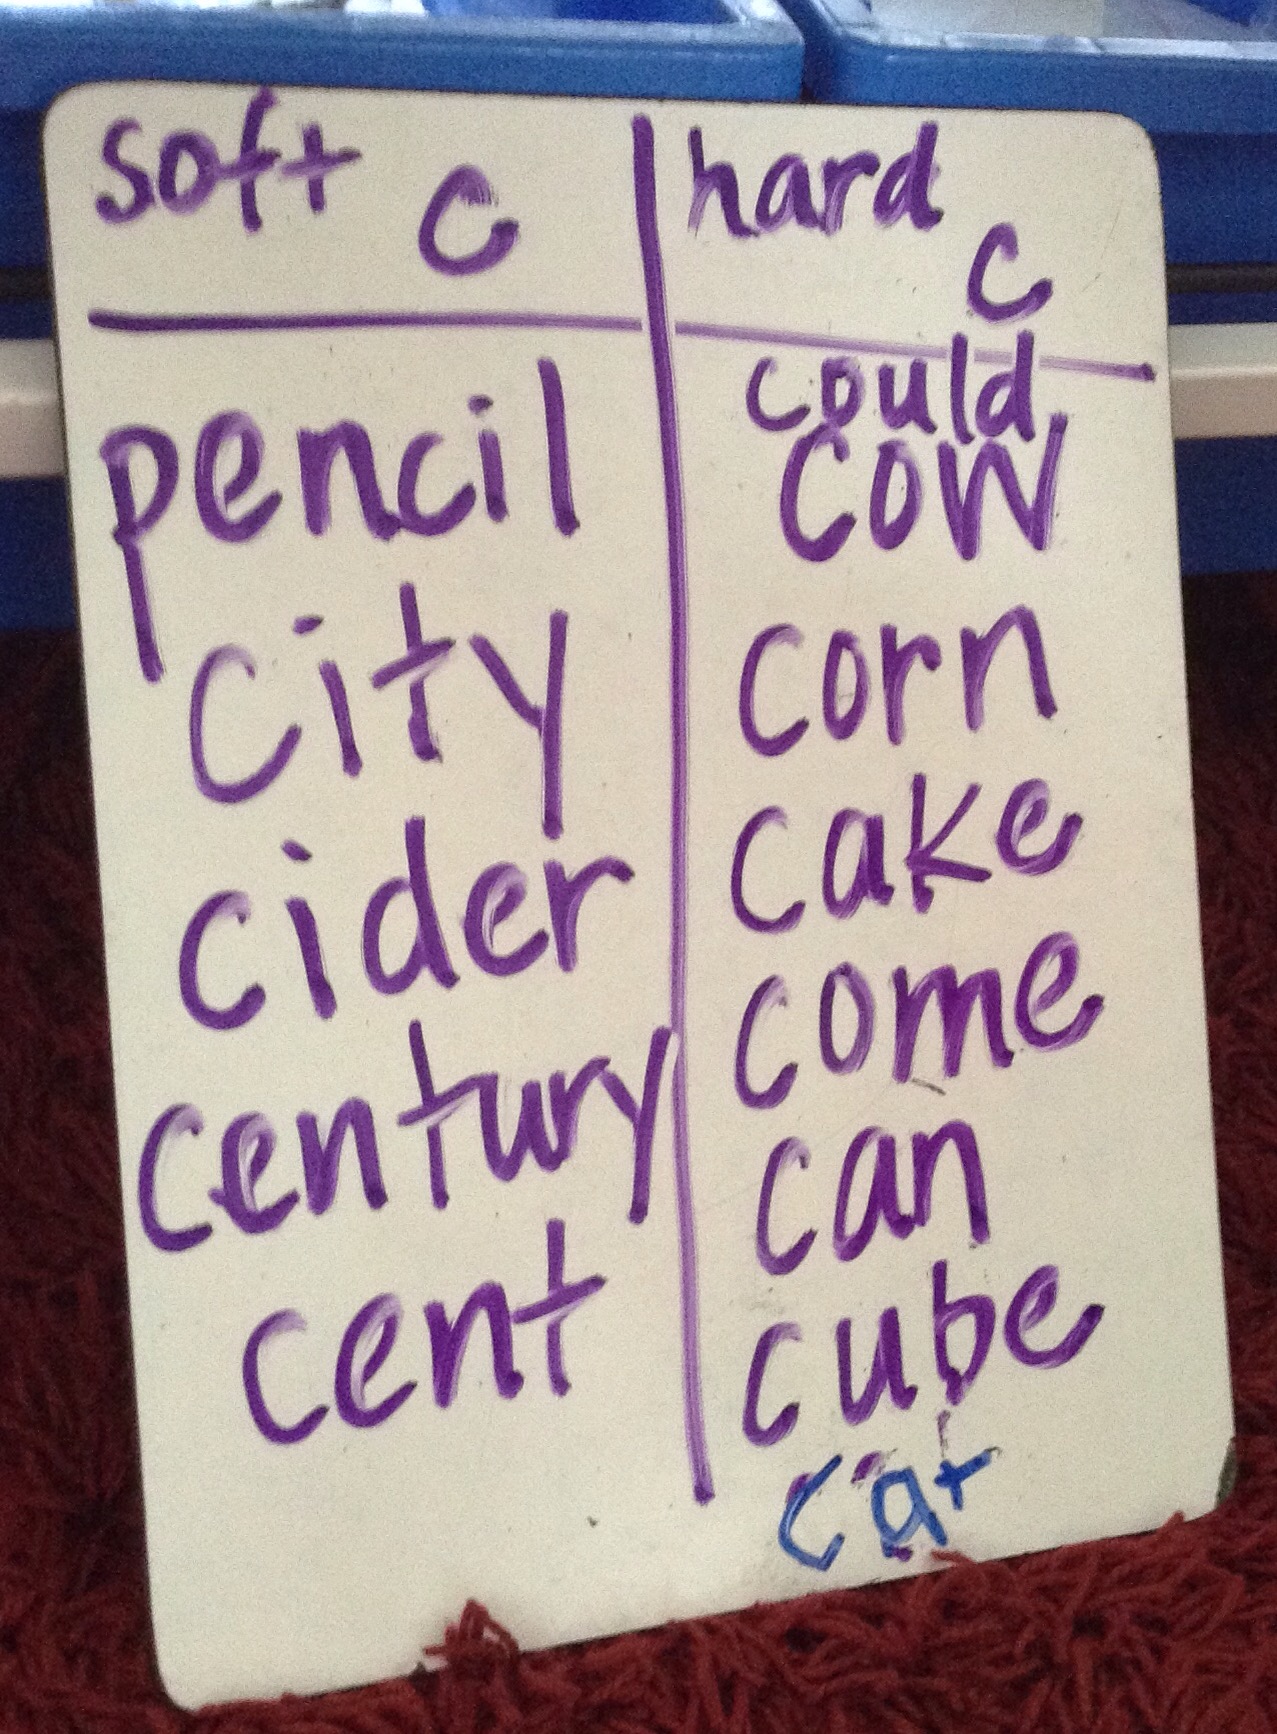 soft c
pencil
city
cider
century
cent
hard c
could
cow
corn
cake
come
can
cube
cat